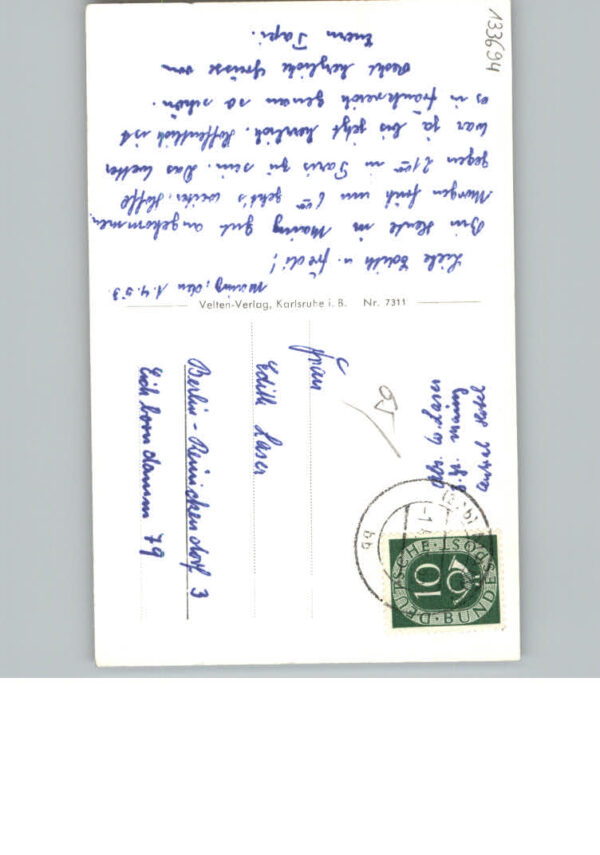 Mainz, den 1.4.53.
Liebe Edith u. Fredi!
Bin Heute in Mainz gut angekommen.
Morgen früh um 6 00 geht's weiter. Hoffe
gegen 21 00 in Paris zu sein. Das Wetter
war ja bis jetzt herrlich. Hoffentlich ist
es in Frankreich genau so schön.
Recht herzliche Grüsse von
Euerm Papi.
Velten-Verlag, Karlsruhe i. B. Nr. 7311
Abs. W. Laser
z. Zt. Mainz
Central Hotel
Frau
Edith Laser
Berlin-Reinickendorf 3
Eichborndamm 79
DEUTSCHE BUNDESPOST
10
133694